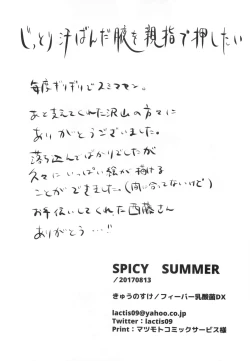 じっとり汗ばんだ腋を親指で押したい
毎度ギリギリでスミマセン。
あと支えてくれた沢山の方々に
ありがとうございました。
落ち込んでばかりでしたが
久々にいっぱい絵が描ける
ことができました。(間に合ってないけど)
お手伝いしてくれた西藤さん
ありがとう…!!
SPICY SUMMER
/20170813
きゅうのすけ/フィーバー乳酸菌DX
lactis09@yahoo.co.jp
Twitter:lactis09
Print:マツモトコミックサービス様